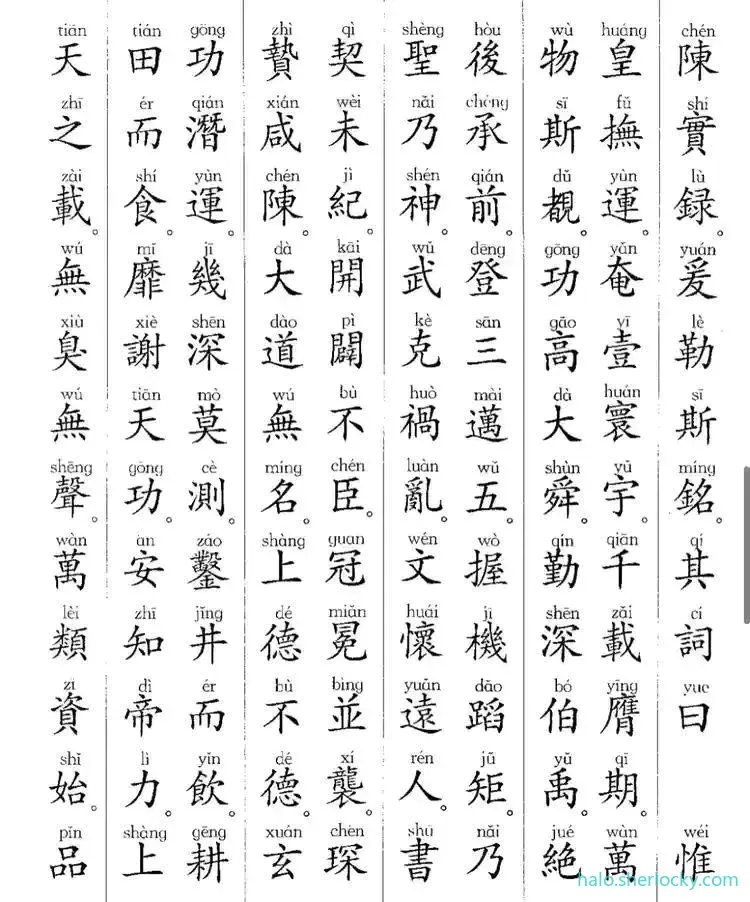 chén shí lù yuán lè sī míng qí cí yue wéi
陳實録。爰勒斯銘。其詞曰 惟
huáng fǔ yùn yǎn yī huán yǔ qiān zǎi yīng qī wàn
皇撫運。奄壹寰宇。千載膺期。萬
wù sī dǔ gōng gāo dà shùn qín shēn bó yǔ jué
物斯覩。功高大舜。勤深伯禹。絶
hòu chéng qián dēng sān mài wǔ wò jī dǎo jǔ nǎi
後承前。登三邁五。握機蹈矩。乃
shèng nǎi shén wǔ kè huò luàn wén huái yuǎn rén shū
聖乃神。武克禍亂。文懷遠人。書
qì wèi jì kāi pì bù chén guan miǎn bìng xí chēn
契未紀。開闢不臣。冠冕並襲。琛
zhì xián chén dà dào wú míng shàng dé bù dé xuán
贄咸陳。大道無名。上德不德。玄
gōng qián yùn jī shēn mò cè záo jǐng ér yǐn gēng
功潛運。幾深莫測。鑿井而飲。耕
tián ér shí mǐ xiè tiān gōng an zhī dì lì shàng
田而食。靡謝天功。安知帝力。上
tiān zhī zài wú xiù wú shēng wàn lèi zī shǐ pǐn
天之載。無臭無聲。萬類資始。品
halo.sherlocky.com